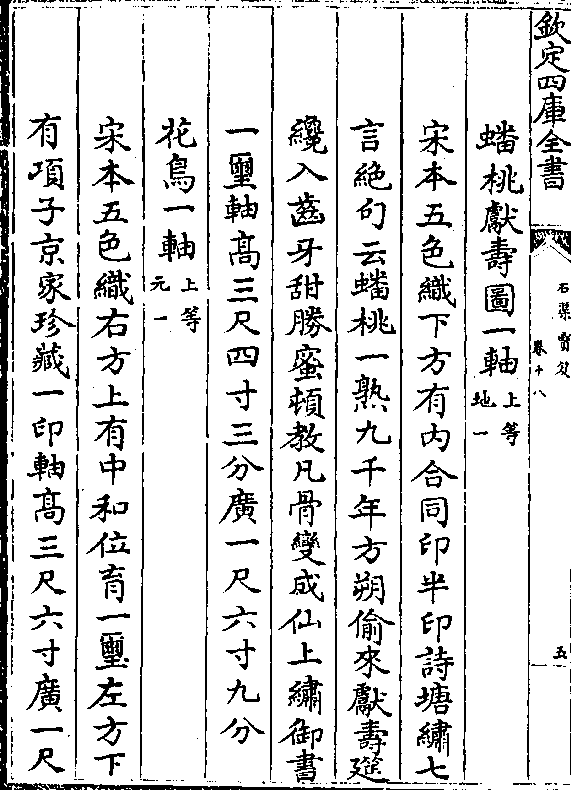 欽定四庫全書
石渠寶笈
卷十八
五
蟠桃獻壽圖一軸上等地一
宋本五色織下方有内合同印半印詩塘繡七
言絶句云蟠桃一熟九千年方朔偷來獻壽筵
纔入齒牙甜勝蜜頓教凡骨變成仙上繡御書
一璽軸髙三尺四寸三分廣一尺六寸九分
花鳥一軸上等元一
宋本五色織右方上有中和位育一璽左方下
有項子京家珍藏一印軸髙三尺六寸廣一尺